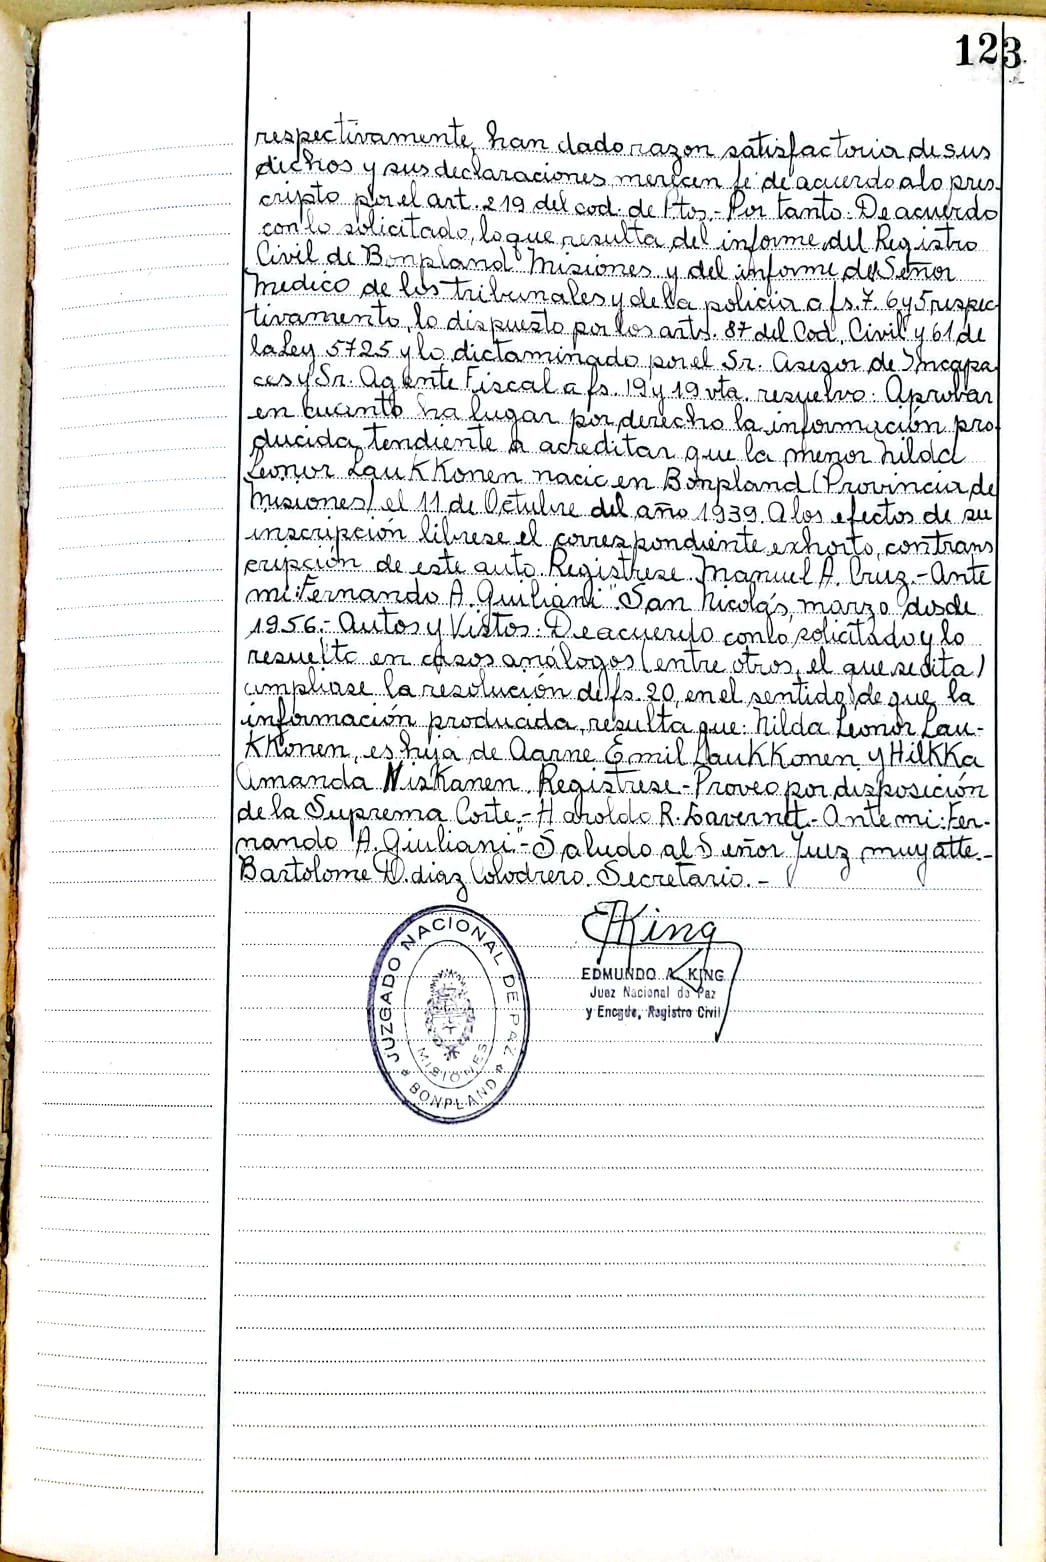 123
respectivamente, han dado razon satisfactoria de sus
dichos y sus declaraciones merecen fé de acuerdo a lo pres-
cripto por el art. 219 del cod. de Ptos.- Por tanto: De acuerdo
con lo solicitado, lo que resulta del informe del Registro
Civil de Bonpland Misiones y del informe del Señor
Medico de los tribunales y de la policia a fs. 7. 6 y 5 respec-
tivamente, lo dispuesto por los arts. 87 del Cod. Civil y 61 de
la Ley 5725 y lo dictaminado por el Sr. Asesor de Incapa
ces y Sr. Agente Fiscal a fs. 19 y 19 vta. resuelvo: Aprobar
en cuanto ha lugar por derecho la información pro
ducida tendiente a acreditar que la menor Nilda
Leonor Laukkonen nacic en Bonpland (Provincia de
Misiones) el 11 de Octubre del año 1939. A los efectos de su
inscripción librese el correspondiente exhorto, con trans
cripción de este auto. Registrese. Manuel A. Cruz.- Ante
mi: Fernando A. Guiliani" San Nicolás, marzo desde
1956.- Autos y Vistos: De acuerdo con lo solicitado y lo
resuelto en casos análogos (entre otros, el que se dita)
ampliase la resolución de fs. 20, en el sentido de que la
información producida, resulta que: Nilda Leonor Lau-
kkonen, es hija de Aarne Emil Laukkonen y Hilkka
Amanda Niskanen. Registrese.- Proveo por disposición
de la Suprema Corte.- Haroldo R. Lavernet.- Ante mi: Fer-
nando A. Giuliani".- Saludo al Señor Juez muy atte.-
Bartolome D. diaz Colodrero. Secretario.-
EAKing
EDMUNDO A. KING
Juez Nacional de Paz
y Encgdo. Registro Civil
JUZGADO NACIONAL DE PAZ
MISIONES
BONPLAND